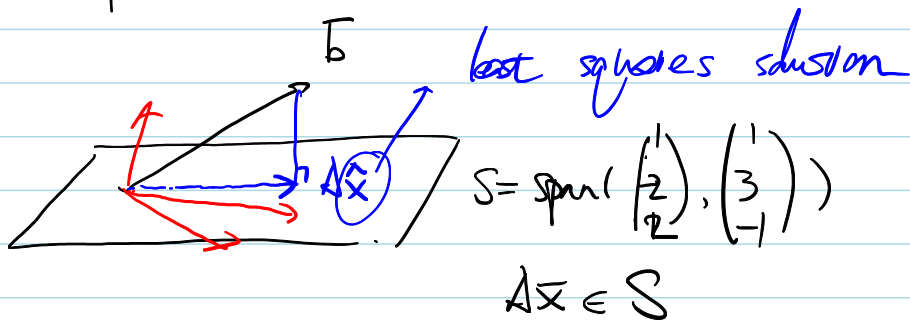 b̅
least squares solution
A x̂
S = span( (1 -2 2), (1 3 -1) )
A x̅ ∈ S